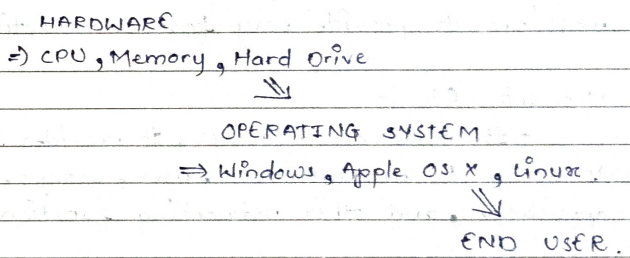 HARDWARE
⇒ CPU, Memory, Hard Drive
⇓
OPERATING SYSTEM
⇒ Windows, Apple OS X, Linux.
⇓
END USER.